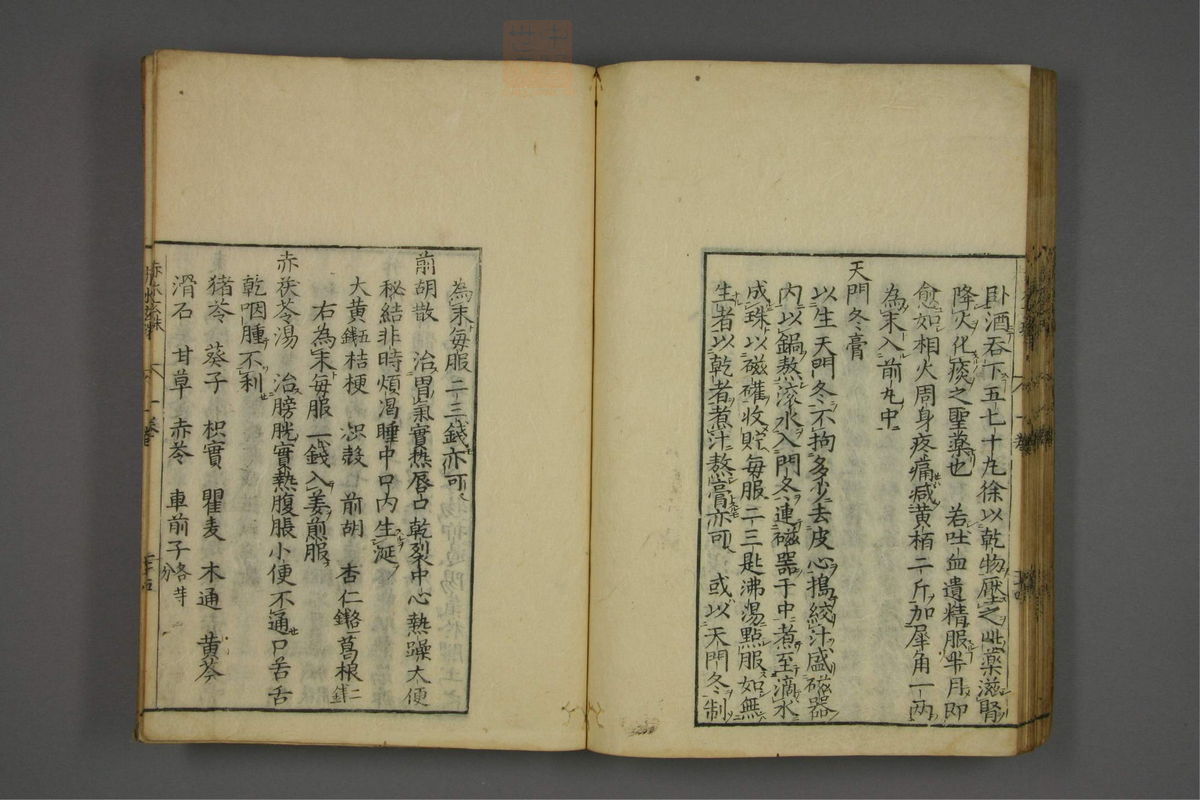 臥酒吞下五七十丸徐以乾物壓之此藥滋腎
降火化痰之聖藥也　若吐血遺精服半月即
愈如相火周身疼痛减黄栢二斤加犀角一两
為末入前丸中
天門冬膏
以生天門冬不拘多少去皮心搗綾汁盛磁器
内以鍋熬滾水入門冬連磁器于中煮至滴水
成珠以磁礶收貯每服二三匙沸湯點服如無
生者以乾者煮汁熬膏亦可　或以天門冬制
為末每服二三錢亦可
前胡散　治胃氣實热唇口乾裂中心熱躁大便
秘結非時煩渴睡中口内生涎
大黄五錢桔梗　枳殻　前胡　杏仁各錢葛根二錢
右為末每服一錢入姜煎服
赤茯苓湯　治膀胱實熱腹脹小便不通口舌舌
乾咽腫不利
猪苓　葵子　枳實　瞿麦　木通　黄芩
滑石　甘草　赤苓　車前子各等分